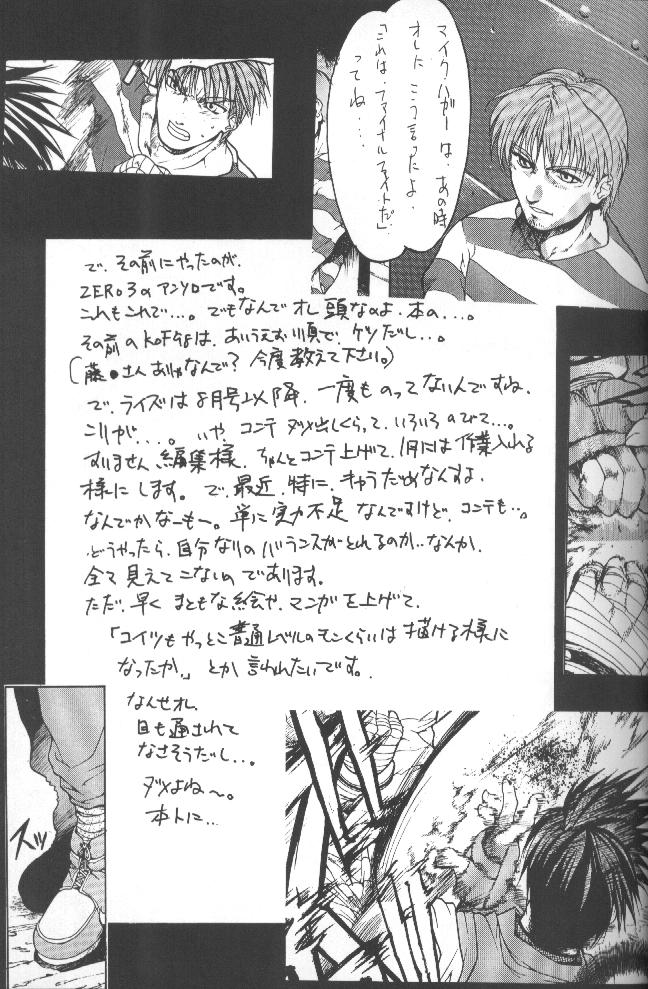 マイクハガーは、あの時
オレに こう言ったよ、
「これは、ファイナルファイトだ」
ってね…
で、その前にやったのが、
ZERO3のアンソロです。
これもこれで…。でもなんで オレ 頭なのよ、本の…。
その前の KOF98は、あいうえお順で、ケツだし…。
(藤●さん ありゃなんで? 今度教えて下さい。)
で、ライズは8月号以降、一度ものってないんですね、
こりが…。 いや コンテ ダメ出しくらって、いろいろのびて…。
すいません、編集様、ちゃんとコンテ上げて、1月には作業入れる
様にします。 で、最近、特に、キャラだめなんすよ、
なんでかなーもー。単に実力不足なんですけど、コンテも…。
どうやったら、自分なりのバランスがとれるのか…なんか、
全て見えてこないのであります。
ただ、早く まともな絵や、マンガを上げて、
「コイツもやっとこ普通レベルのモンくらいは描ける様に
なったか」とか言われたいです。
なんせオレ、
目も通されて
なさそうだし…。
ダメよね〜。
本トに…
スッ